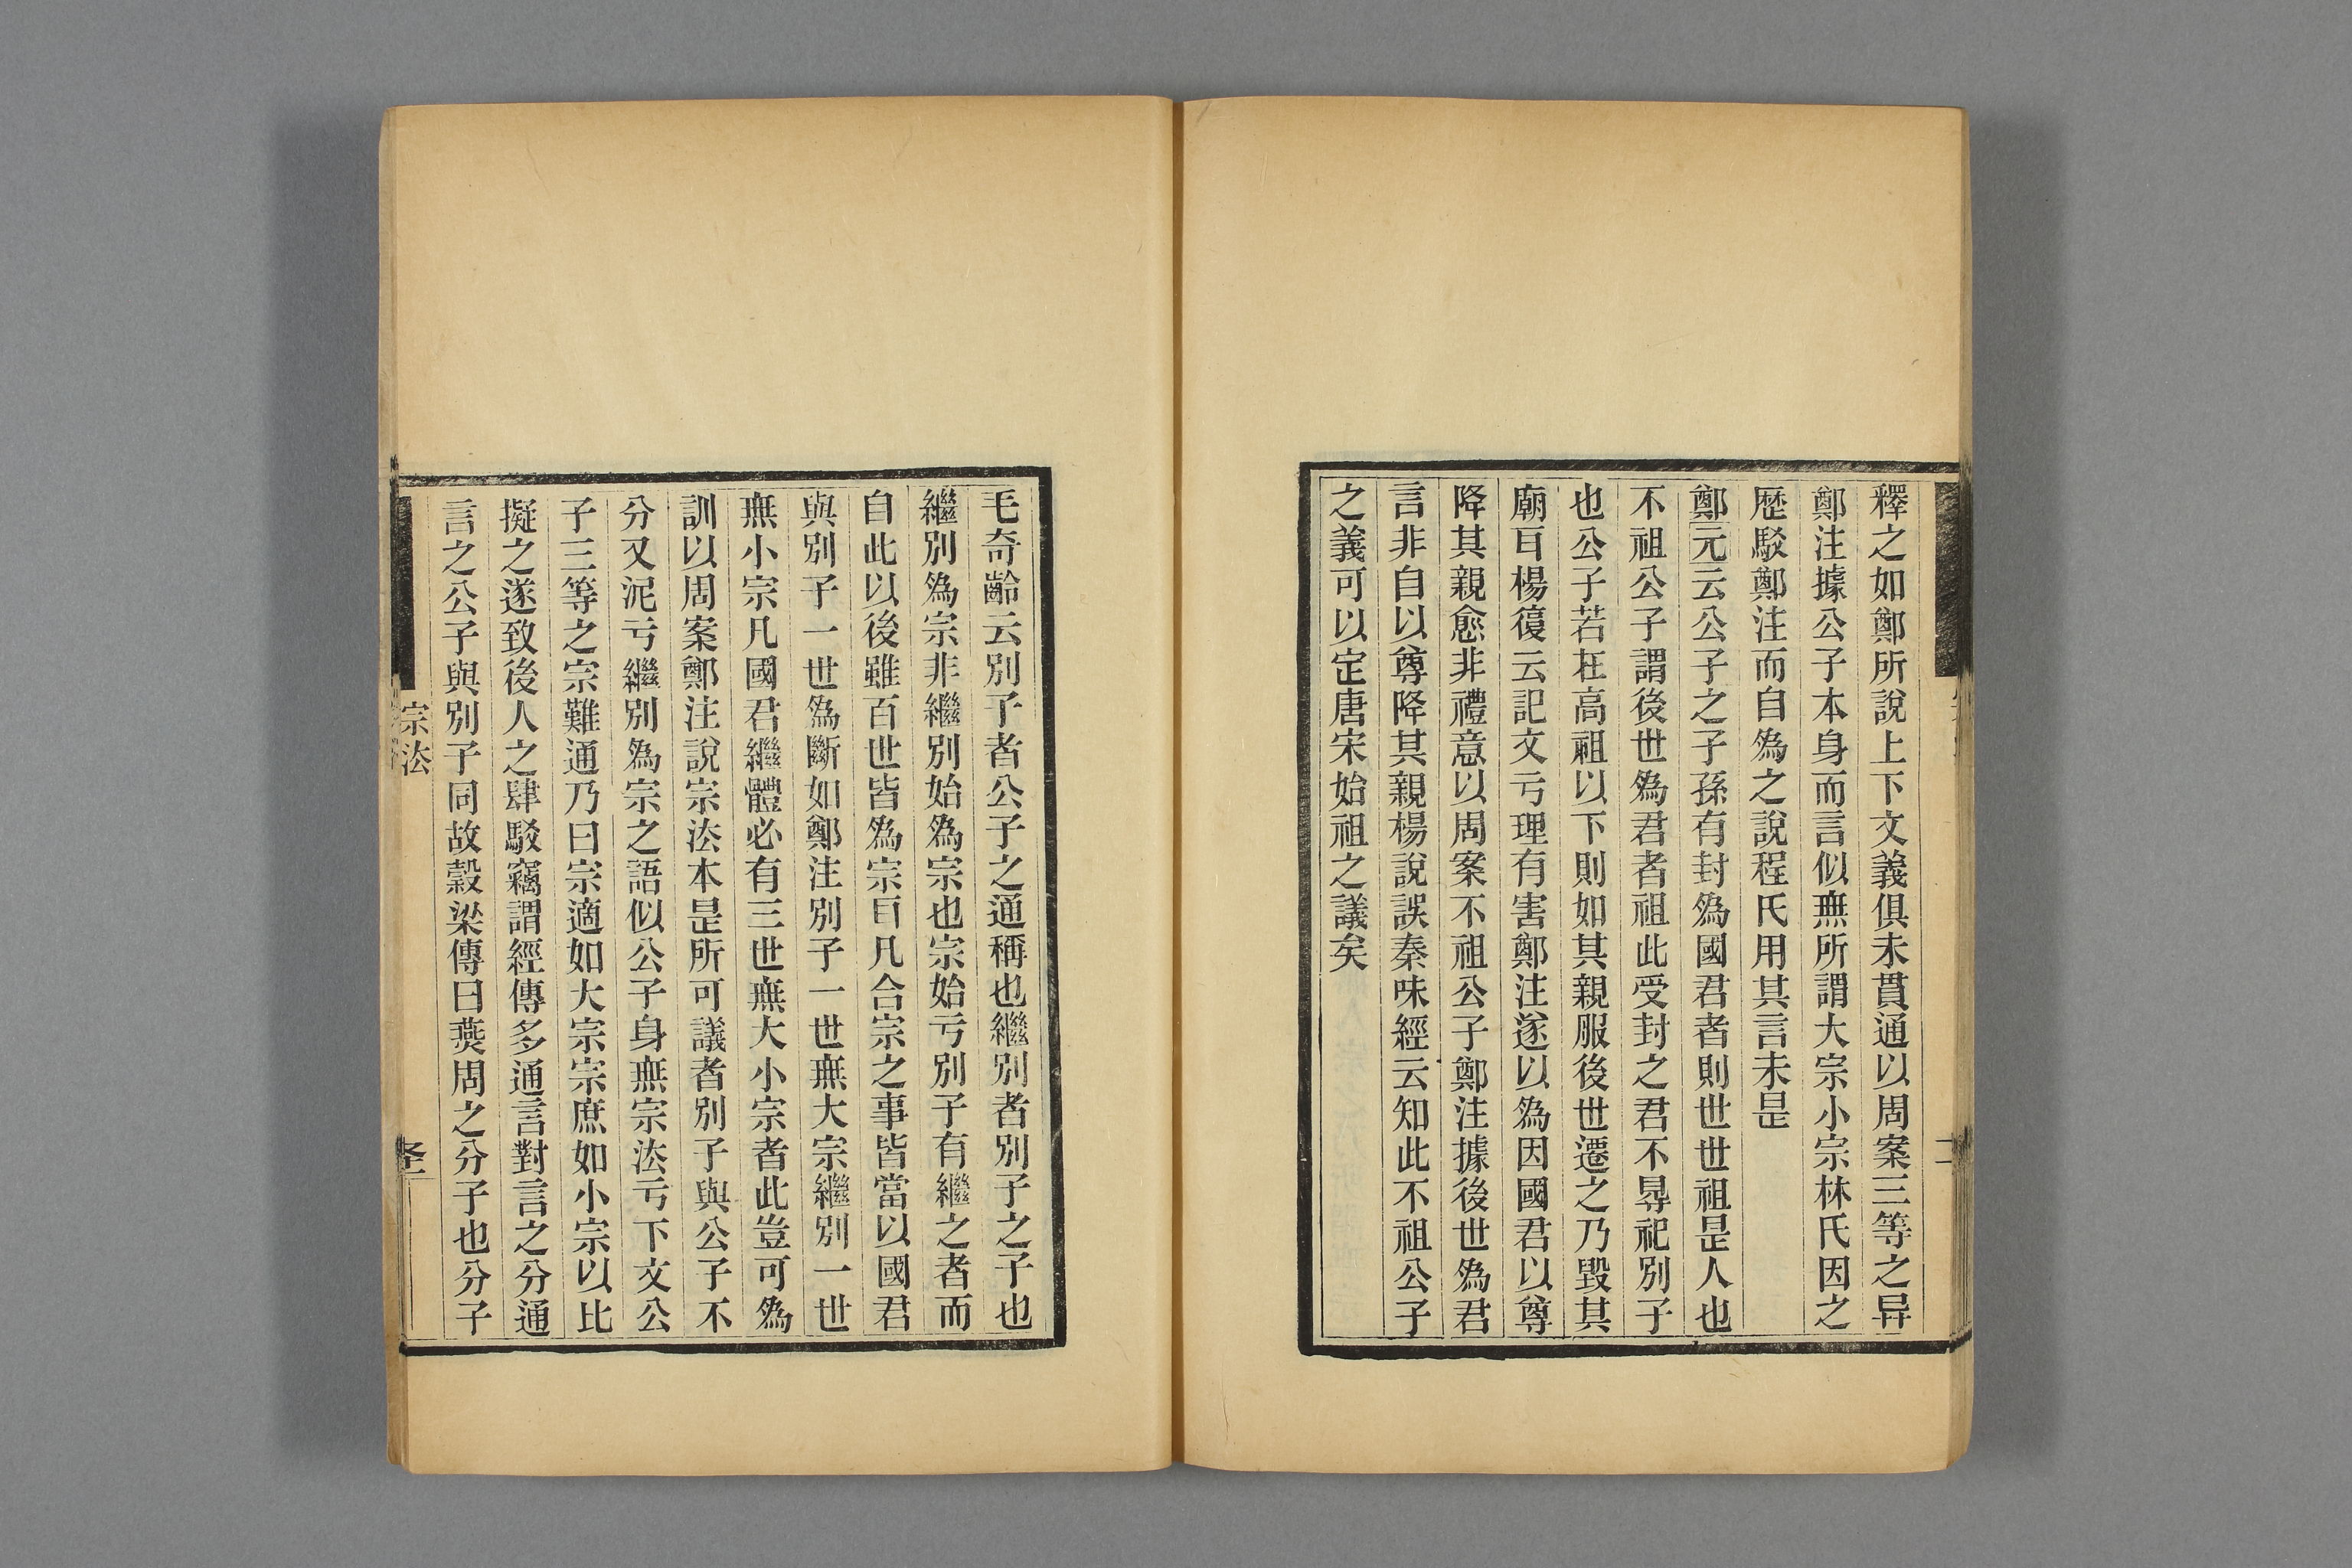 釋之如鄭所說上下文義俱未貫通以周案三等之异
鄭注據公子本身而言似無所謂大宗小宗林氏因之
歷駁鄭注而自爲之說程氏用其言未是
鄭元云公子之子孫有封爲國君者則世世祖是人也
不祖公子謂後世爲君者祖此受封之君不㝵祀別子
也公子若在高祖以下則如其親服後世遷之乃毀其
廟㠯楊復云記文亏理有害鄭注遂以爲因國君以尊
降其親愈非禮意以周案不祖公子鄭注據後世爲君
言非自以尊降其親楊說誤秦味經云知此不祖公子
之義可以定唐宋始祖之議矣
毛奇齡云別子者公子之通稱也繼別者別子之子也
繼別爲宗非繼別始爲宗也宗始亏別子有繼之者而
自此以後雖百世皆爲宗㠯凡合宗之事皆當以國君
與別子一世爲斷如鄭注別子一世無大宗繼別一世
無小宗凡國君繼體必有三世無大小宗者此豈可爲
訓以周案鄭注說宗法本是所可議者別子與公子不
分又泥亏繼別爲宗之語似公子身無宗法亏下文公
子三等之宗難通乃曰宗適如大宗宗庶如小宗以比
擬之遂致後人之肆駁竊謂經傳多通言對言之分通
言之公子與別子同故穀梁傳曰燕周之分子也分子
宗法